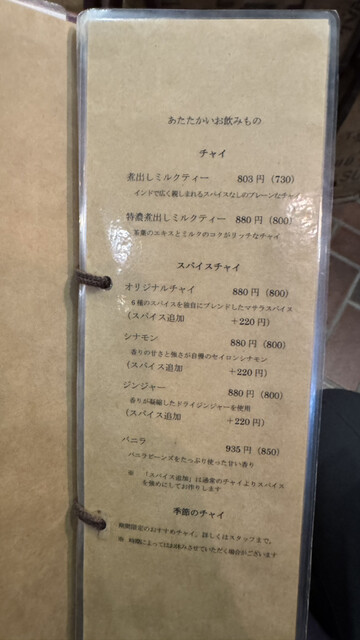 あたたかいお飲みもの
チャイ
煮出しミルクティー 803円(730)
インドで広く親しまれるスパイスなしのプレーンなチャイ
特濃煮出しミルクティー 880円(800)
茶葉のエキスとミルクのコクがリッチなチャイ
スパイスチャイ
オリジナルチャイ 880円(800)
6種のスパイスを独自にブレンドしたマサラスパイス
(スパイス追加 +220円)
シナモン 880円(800)
香りの甘さと強さが自慢のセイロンシナモン
(スパイス追加 +220円)
ジンジャー 880円(800)
香りが凝縮したドライジンジャーを使用
(スパイス追加 +220円)
バニラ 935円(850)
バニラビーンズをたっぷり使った甘い香り
※ 「スパイス追加」は通常のチャイよりスパイス
を強めにしてお作りします
季節のチャイ
期間限定のおすすめチャイ。詳しくはスタッフまで。
※ 時期によってはお休みさせていただく場合がございます